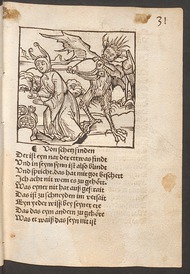 31
¶ Von schetz finden
Der ist eyn nar der ettwas findt
Vnd in seym synn ist also blindt
Vnd spricht, das hat mir got beschert
Ich acht nit wem es zů gehört,
Was eyner nit hat auß gespreit
Das ist zů schnyden im verseit
Eyn yeder weiß bey seyner ere
Das das eym andern zů gehöre
Was er waißt das seyn nit ist